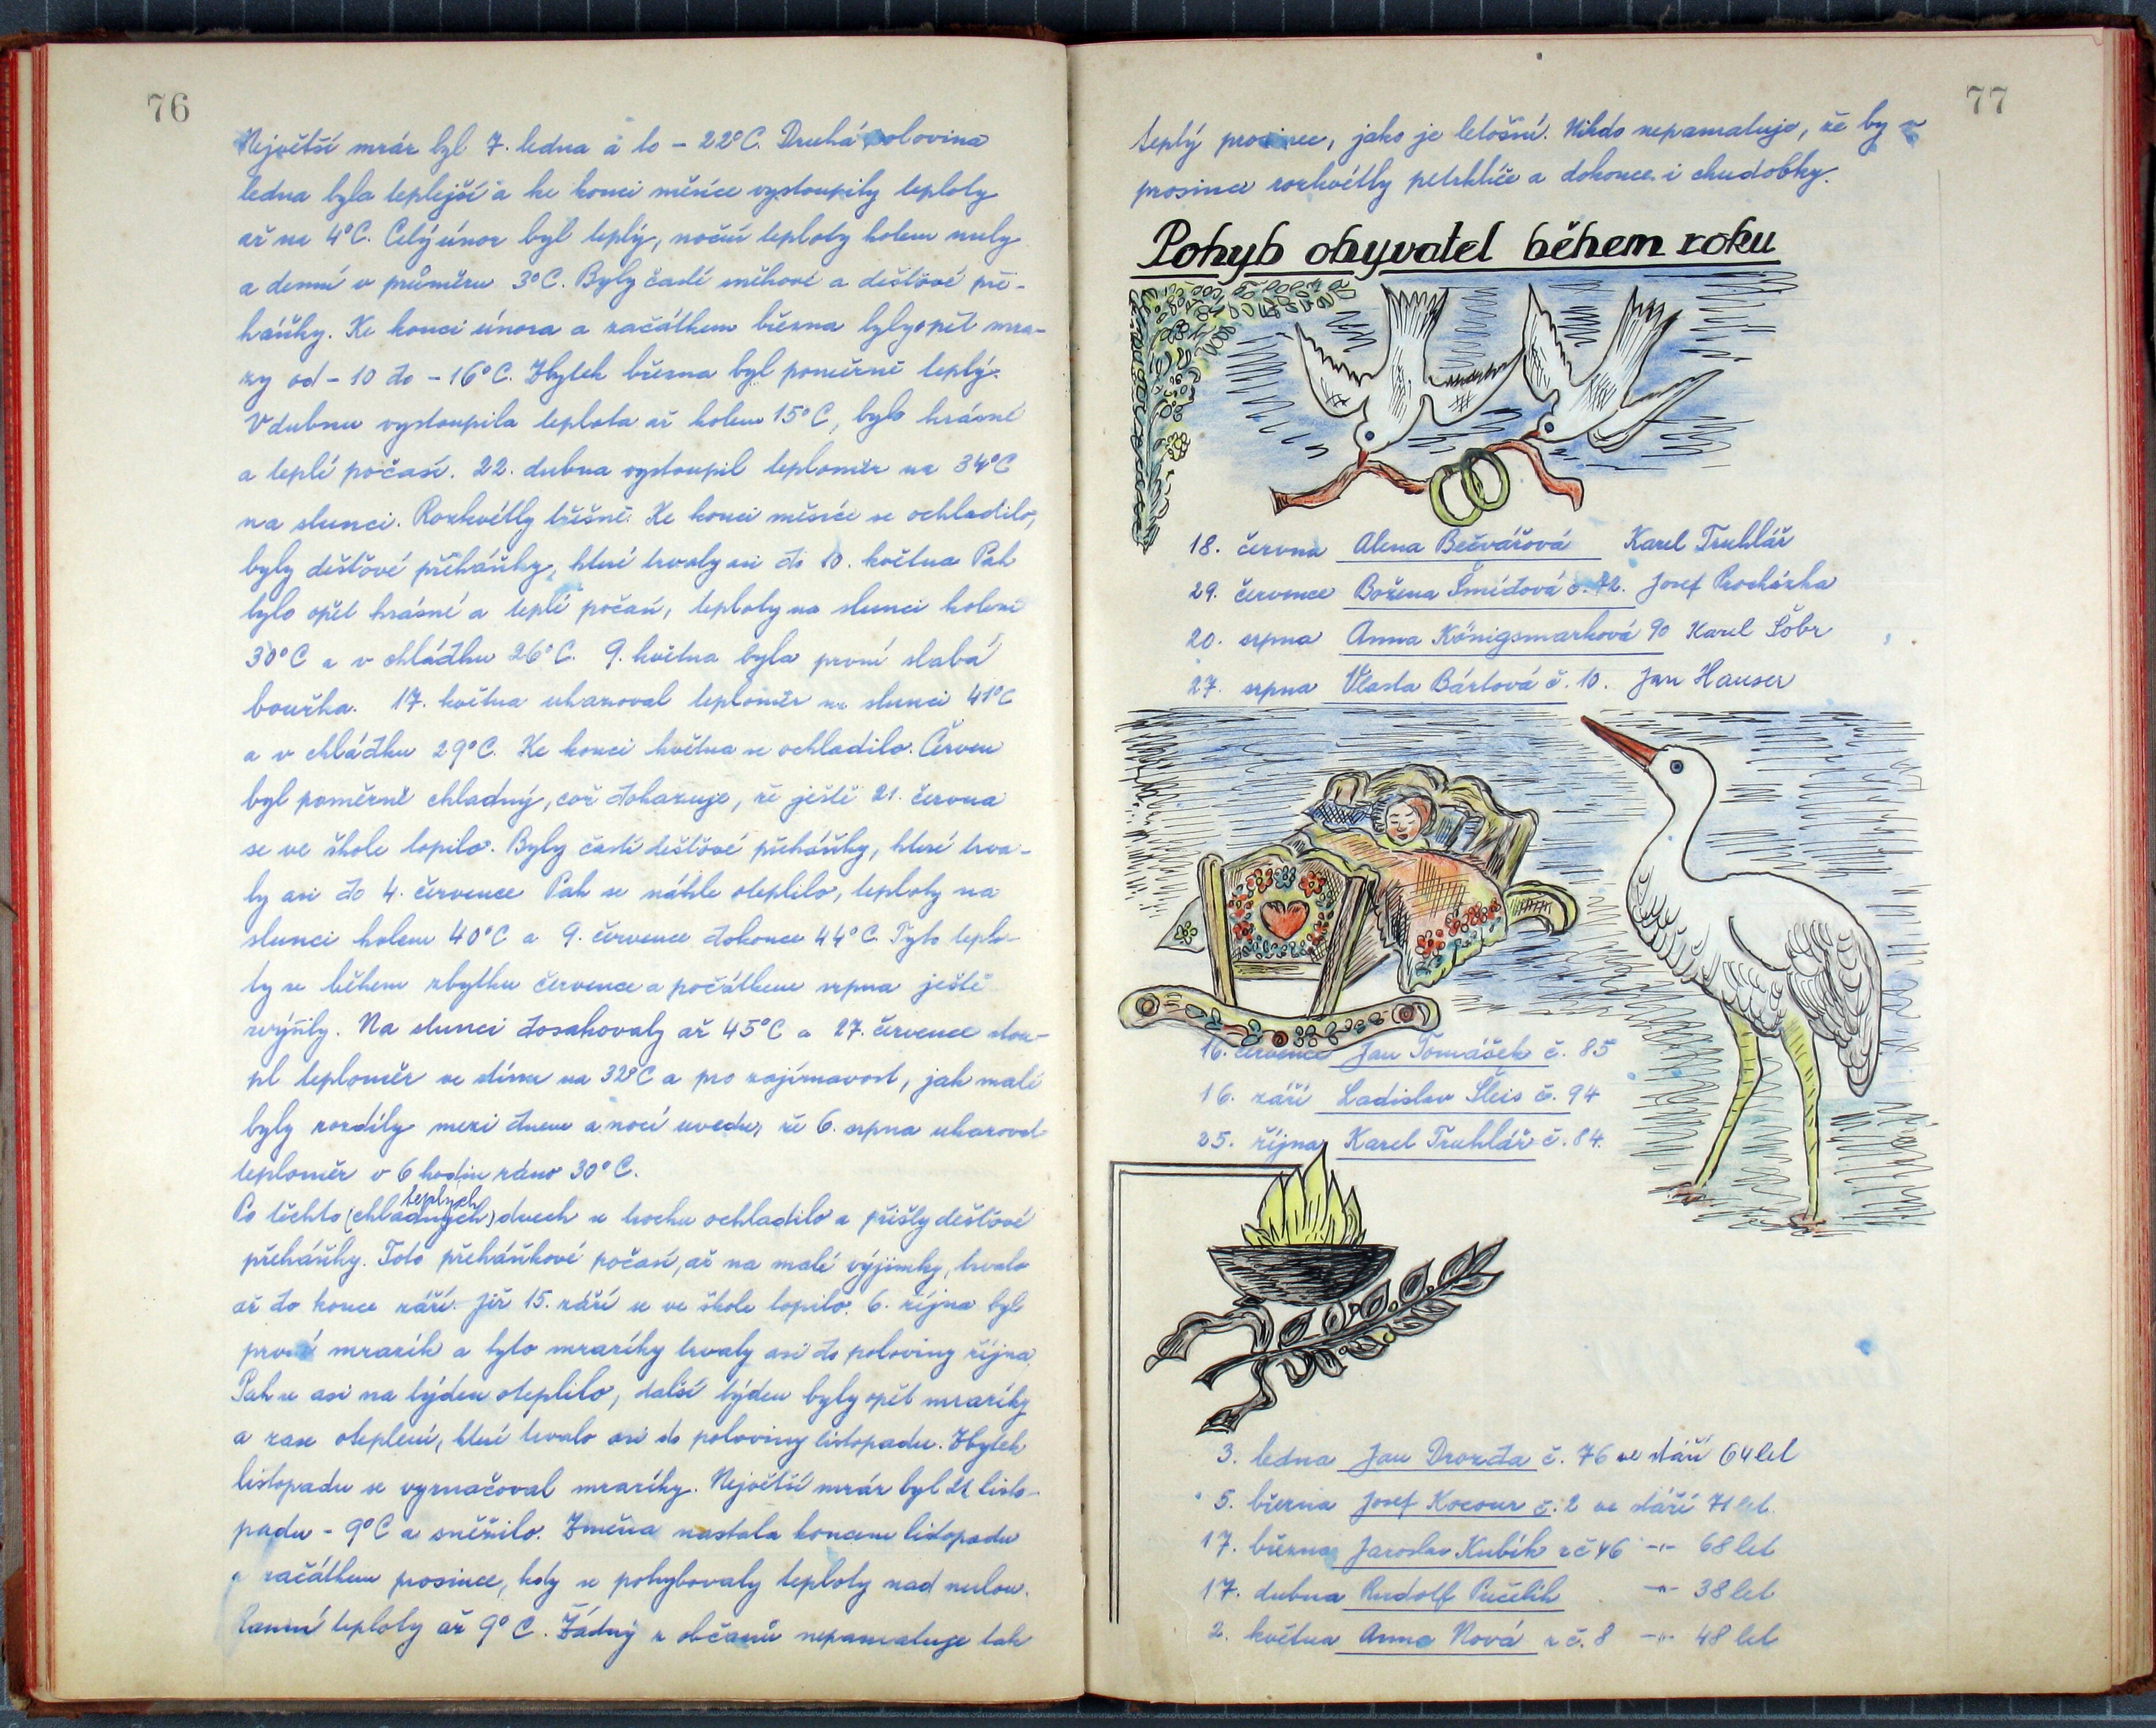 76
Největší mráz byl 7. ledna a to - 22°C. Druhá polovina
ledna byla teplejší a ke konci měsíce vystoupily teploty
až na 4°C. Celý únor byl teplý, noční teploty kolem nuly
a denní v průměru 3°C. Byly časté sněhové a dešťové pře-
háňky. Ke konci února a začátkem března byly opět mra-
zy od - 10 do - 16°C. Zbytek března byl poměrně teplý.
V dubnu vystoupila teplota až kolem 15°C, bylo krásné
a teplé počasí. 22. dubna vystoupil teploměr na 34°C
na slunci. Rozkvétly třešně. Ke konci měsíce se ochladilo,
byly dešťové přeháňky, které trvaly asi do 10. května Pak
bylo opět krásné a teplé počasí, teploty na slunci kolem
30°C a v chládku 26°C. 9. května byla první slabá
bouřka. 17. května ukazoval teploměr na slunci 41°C
a v chládku 29°C. Ke konci května se ochladilo. Červen
byl poměrně chladný, což dokazuje, že ještě 21. června
se ve škole topilo. Byly časté dešťové přeháňky, které trva-
ly asi do 4. července Pak se náhle oteplilo, teploty na
slunci kolem 40°C a 9. července dokonce 44°C. Tyto teplo-
ty se během zbytku července a počátkem srpna ještě
zvýšily. Na slunci dosahovaly až 45°C a 27. července stou-
pl teploměr ve stínu na 32°C a pro zajímavost, jak malé
byly rozdíly mezi dnem a nocí uvedu, že 6. srpna ukazoval
teploměr v 6 hodin ráno 30°C.
teplých
Po těchto (chladných) dnech se trochu ochladilo a přišly dešťové
přeháňky. Toto přeháňkové počasí, až na malé výjimky, trvalo
až do konce září. Již 15. září se ve škole topilo. 6. října byl
první mrazík a tyto mrazíky trvaly asi do poloviny října.
Pak se asi na týden oteplilo, další týden byly opět mrazíky
a zase oteplení, které trvalo asi do poloviny listopadu. Zbytek
listopadu se vyznačoval mrazíky. Největší mráz byl listo-
padu - 9°C a sněžilo. Změna nastala koncem listopadu
a začátkem prosince, kdy se pohybovaly teploty nad nulou.
Ranní teploty až 9°C. Žádný z občanů nepamatuje tak
77
teplý prosinec, jako je letošní. Nikdo nepamatuje, že by v
prosinci rozkvétly petrklíče a dokonce i chudobky.
Pohyb obyvatel během roku
18. června Alena Bečvářová Karel Truhlář
29. července Božena Šmídová č. 72. Josef Procházka
20. srpna Anna Königsmarková 90 Karel Šóbr
27. srpna Vlasta Bártová č. 10. Jan Hauser
16. července Jan Tomášek č. 85
16. září Ladislav Šleis č. 94
25. října Karel Truhlář č. 84.
3. ledna Jan Drozda č. 76 ve stáří 64 let
5. března Josef Kocour č. 2 ve stáří 71 let.
17. března Jaroslav Kubík z č 46 -"- 68 let
17. dubna Rudolf -"- 38 let
2. května Anna Nová z č. 8 -"- 48 let